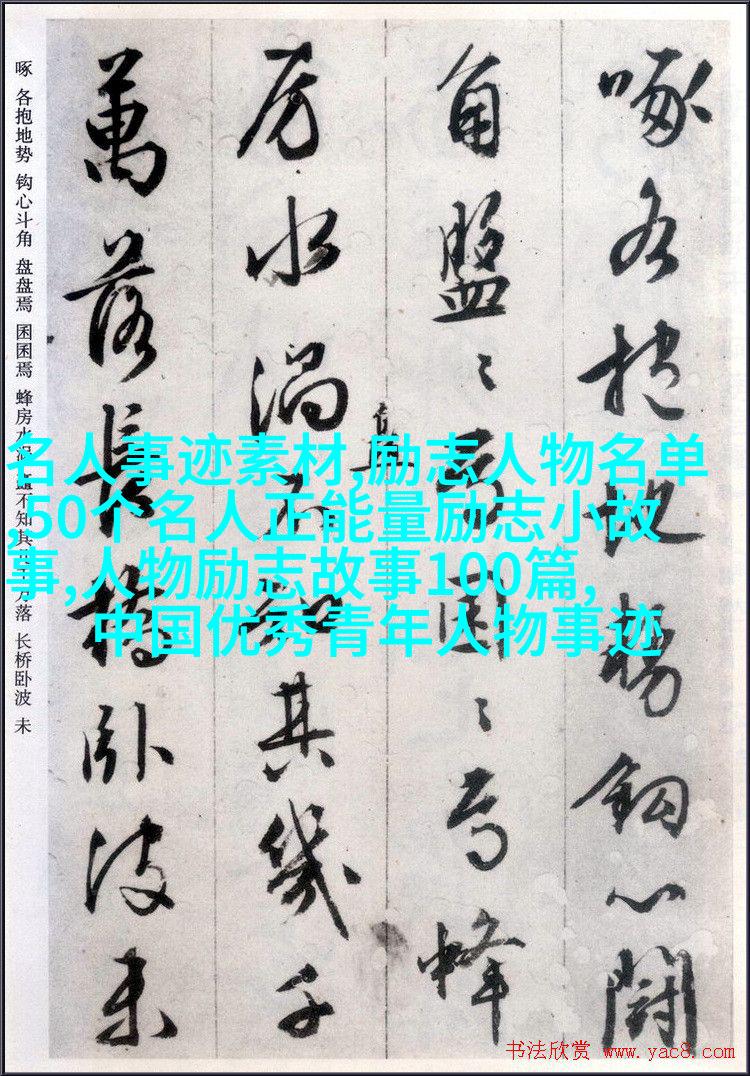 啄各抱地勢鈎心鬪
角盤〻焉囷〻焉蜂
房水渦矗不知其幾千
萬落長橋卧波未
啄 各抱地势 钩心斗角 盘盘焉 囷囷焉 蜂房水涡 矗不知其几千万落 长桥卧波 未
名人事迹素材,励志人物名单
,50个名人正能量励志小故
事,人物励志故事100篇,
中国优秀青年人物事迹
书法欣赏 www.yac8.com